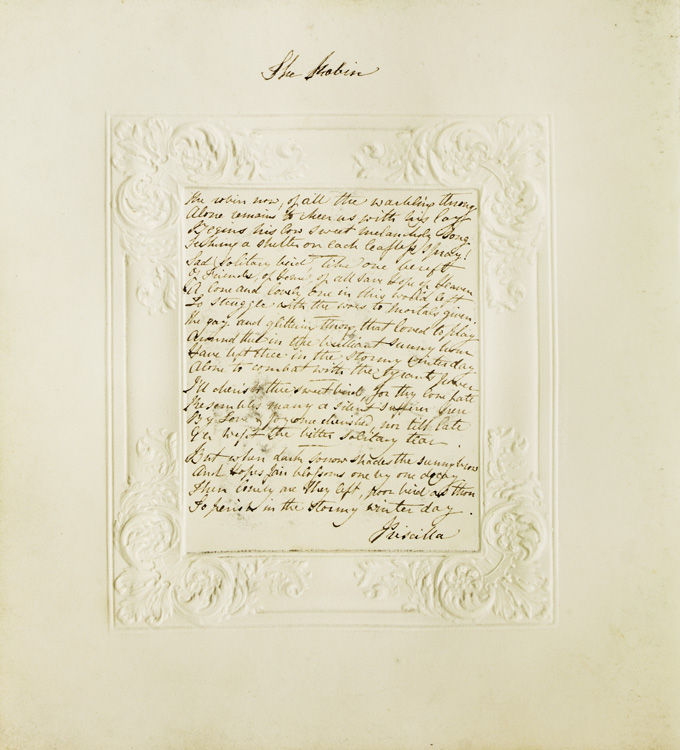 The Robin
The robin now, of all the warbling throng
Alone remains to cheer us with his lay
Begins his low sweet melancholy song
Seeking a shelter on each leafless spray!
Sad solitary bird, like one bereft
Of Friends, of home, of all save hope in heaven
A lone and lovely one in this world left
To struggle with the woes to mortals given.
The gay and glittering throng that loved to play
Around thee in the brilliant sunny hour
Have left thee in the stormy winter day
Alone to combat with the tyrants power
I'll cherish thee sweet bird, for thy lone fate
Resembles many a silent sufferer here
By Love & Joy once cherished, nor till late
E'er wept the bitter solitary tear.
But when dark sorrow shades the sunny brow
And hopes fair blossoms one by one decay
Then lonely are they left, poor bird as thou
To perish in the stormy winter day.
Priscilla